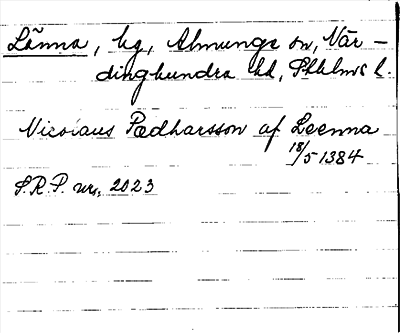 Länna, by, Almunge sn, När-
dinghundra hd, Sthlms l.
Nicoiaus Pædharsson af Leenna
18/5 1384
S.R.P. nr. 2023